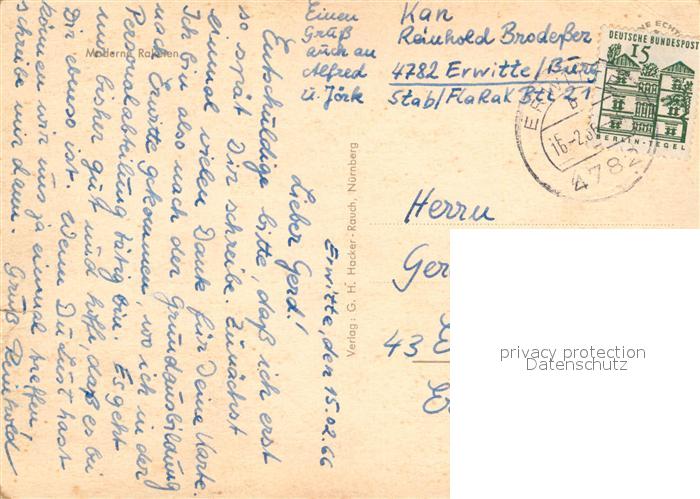 Moderne Raketen
Erwitte, den 15.02.66
Lieber Gerd!
Entschuldige bitte, daß ich erst
so spät Dir schreibe. Zunächst
einmal vielen Dank für Deine Karte.
Ich bin also nach der Grundausbildung
nach Erwitte gekommen, wo ich in der
Personalabteilung tätig bin. Es geht
mir bisher gut und hoffe, daß es bei
Dir ebenso ist. Wenn Du Lust hast
können wir uns ja einmal treffen,
schreibe mir dann. Gruß Reinhold
Einen
Gruß
auch an
Alfred
u. Jörk
Verlag: G. H. Hacker-Rauch, Nürnberg
Kan
Reinhold Brodeßer
4782 Erwitte/Burg
Stab/FlaRak Btl 21
DEUTSCHE BUNDESPOST
15
BERLIN-TEGEL
4782
Herrn
Ger
43 E
privacy protection
Datenschutz